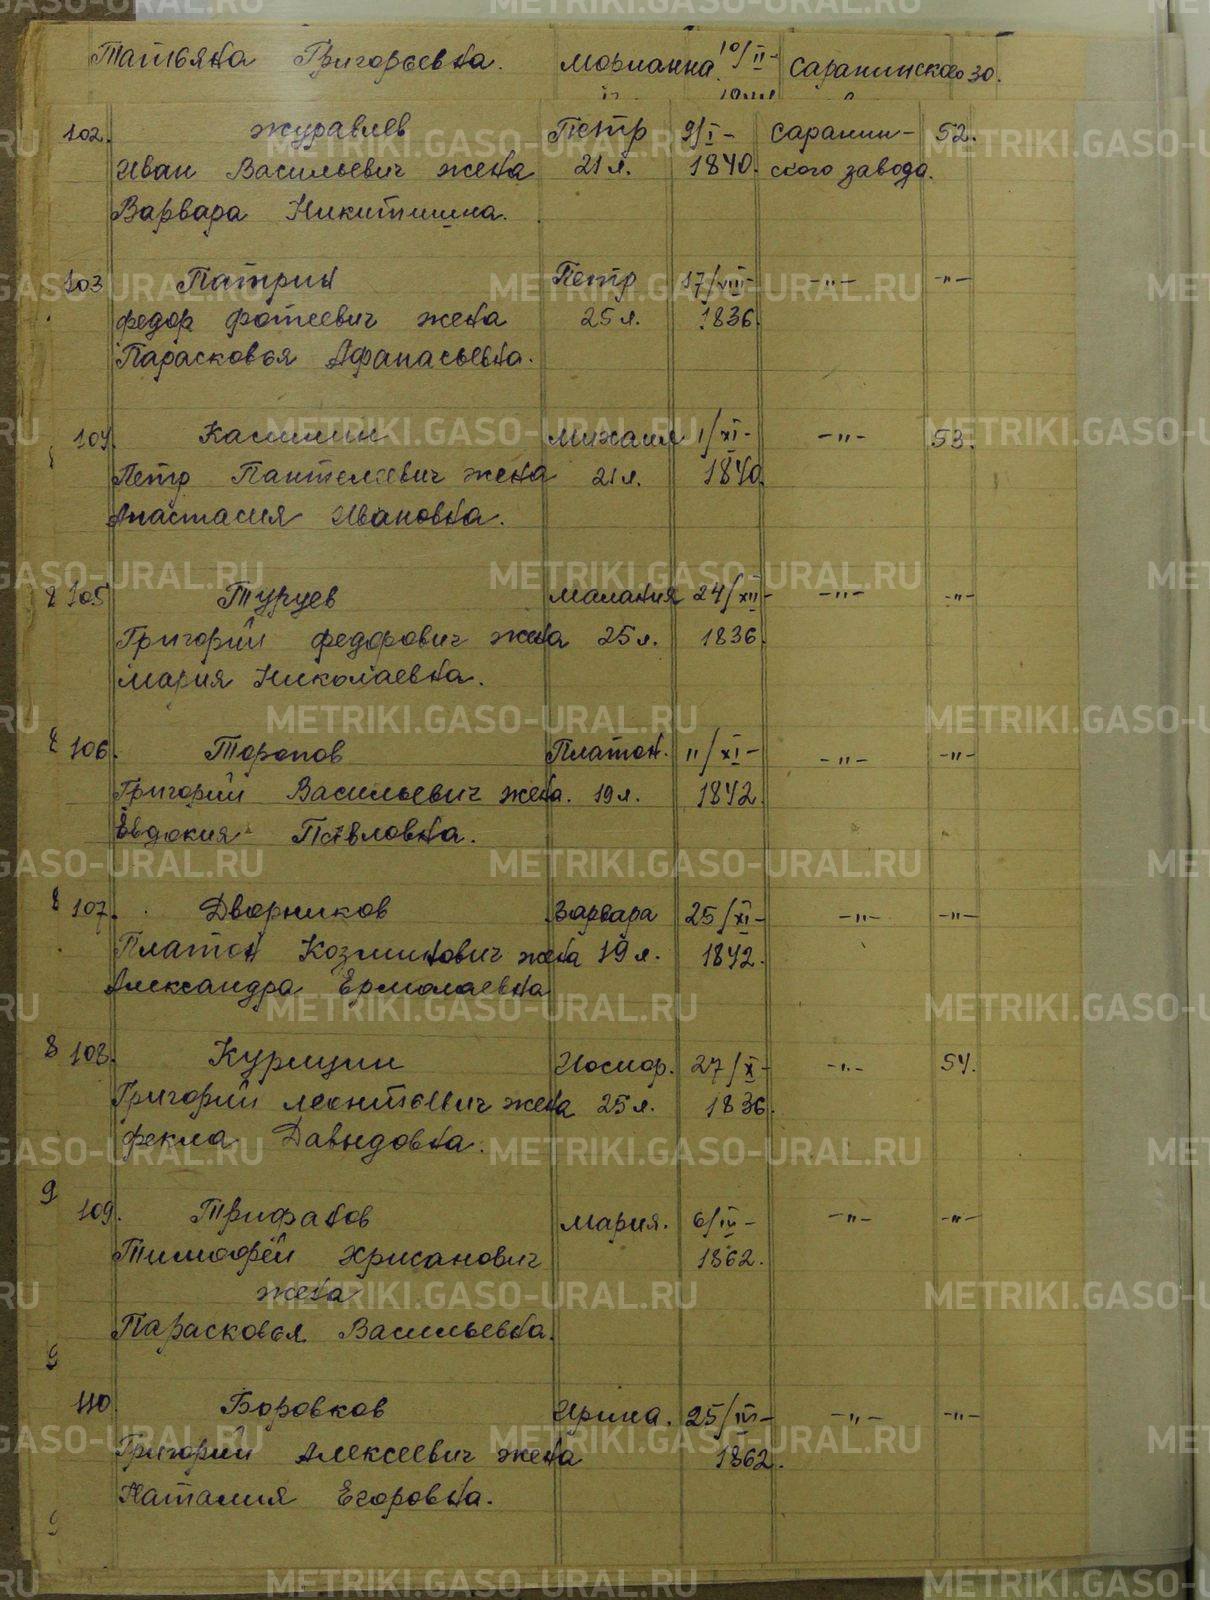 Татьяна Григорьевна. Морианна. 10/II- Саранинского 30.
102. Журавлев Петр 9/I- Саранин- 52.
Иван Васильевич жена 21 л. 1840. ского завода.
Варвара Никитишна.
103 Патрин Петр 17/VIII- -"- -"-
Федор Фотеевич жена 25 л. 1836.
Парасковья Афанасьевна.
104. Касимин Михаил 1/XI- -"- 53.
Петр Пантелеевич жена 21 л. 1840.
Анастасия Ивановна.
105 Туруев Малания 24/XII- -"- -"-
Григорий Федорович жена 25 л. 1836.
Мария Николаевна.
106. Торопов Платон. 11/XI- -"- -"-
Григорий Васильевич жена. 19 л. 1842.
Евдокия Павловна.
107. Дворников Варвара 25/XI- -"- -"-
Платон Козминович жена 19 л. 1842.
Александра Ермолаевна
108. Курицин Иосиф. 27/X- -"- 54.
Григорий Леонтиевич жена 25 л. 1836.
Фекла Давыдовна.
109. Трифанов Мария. 6/III- -"- -"-
Тимофей Хрисанович 1862.
жена
Парасковья Васильевна.
110 Боровков Ирина. 25/III- -"- -"-
Григорий Алексеевич жена 1862.
Наталия Егоровна.
METRIKI.GASO-URAL.RU